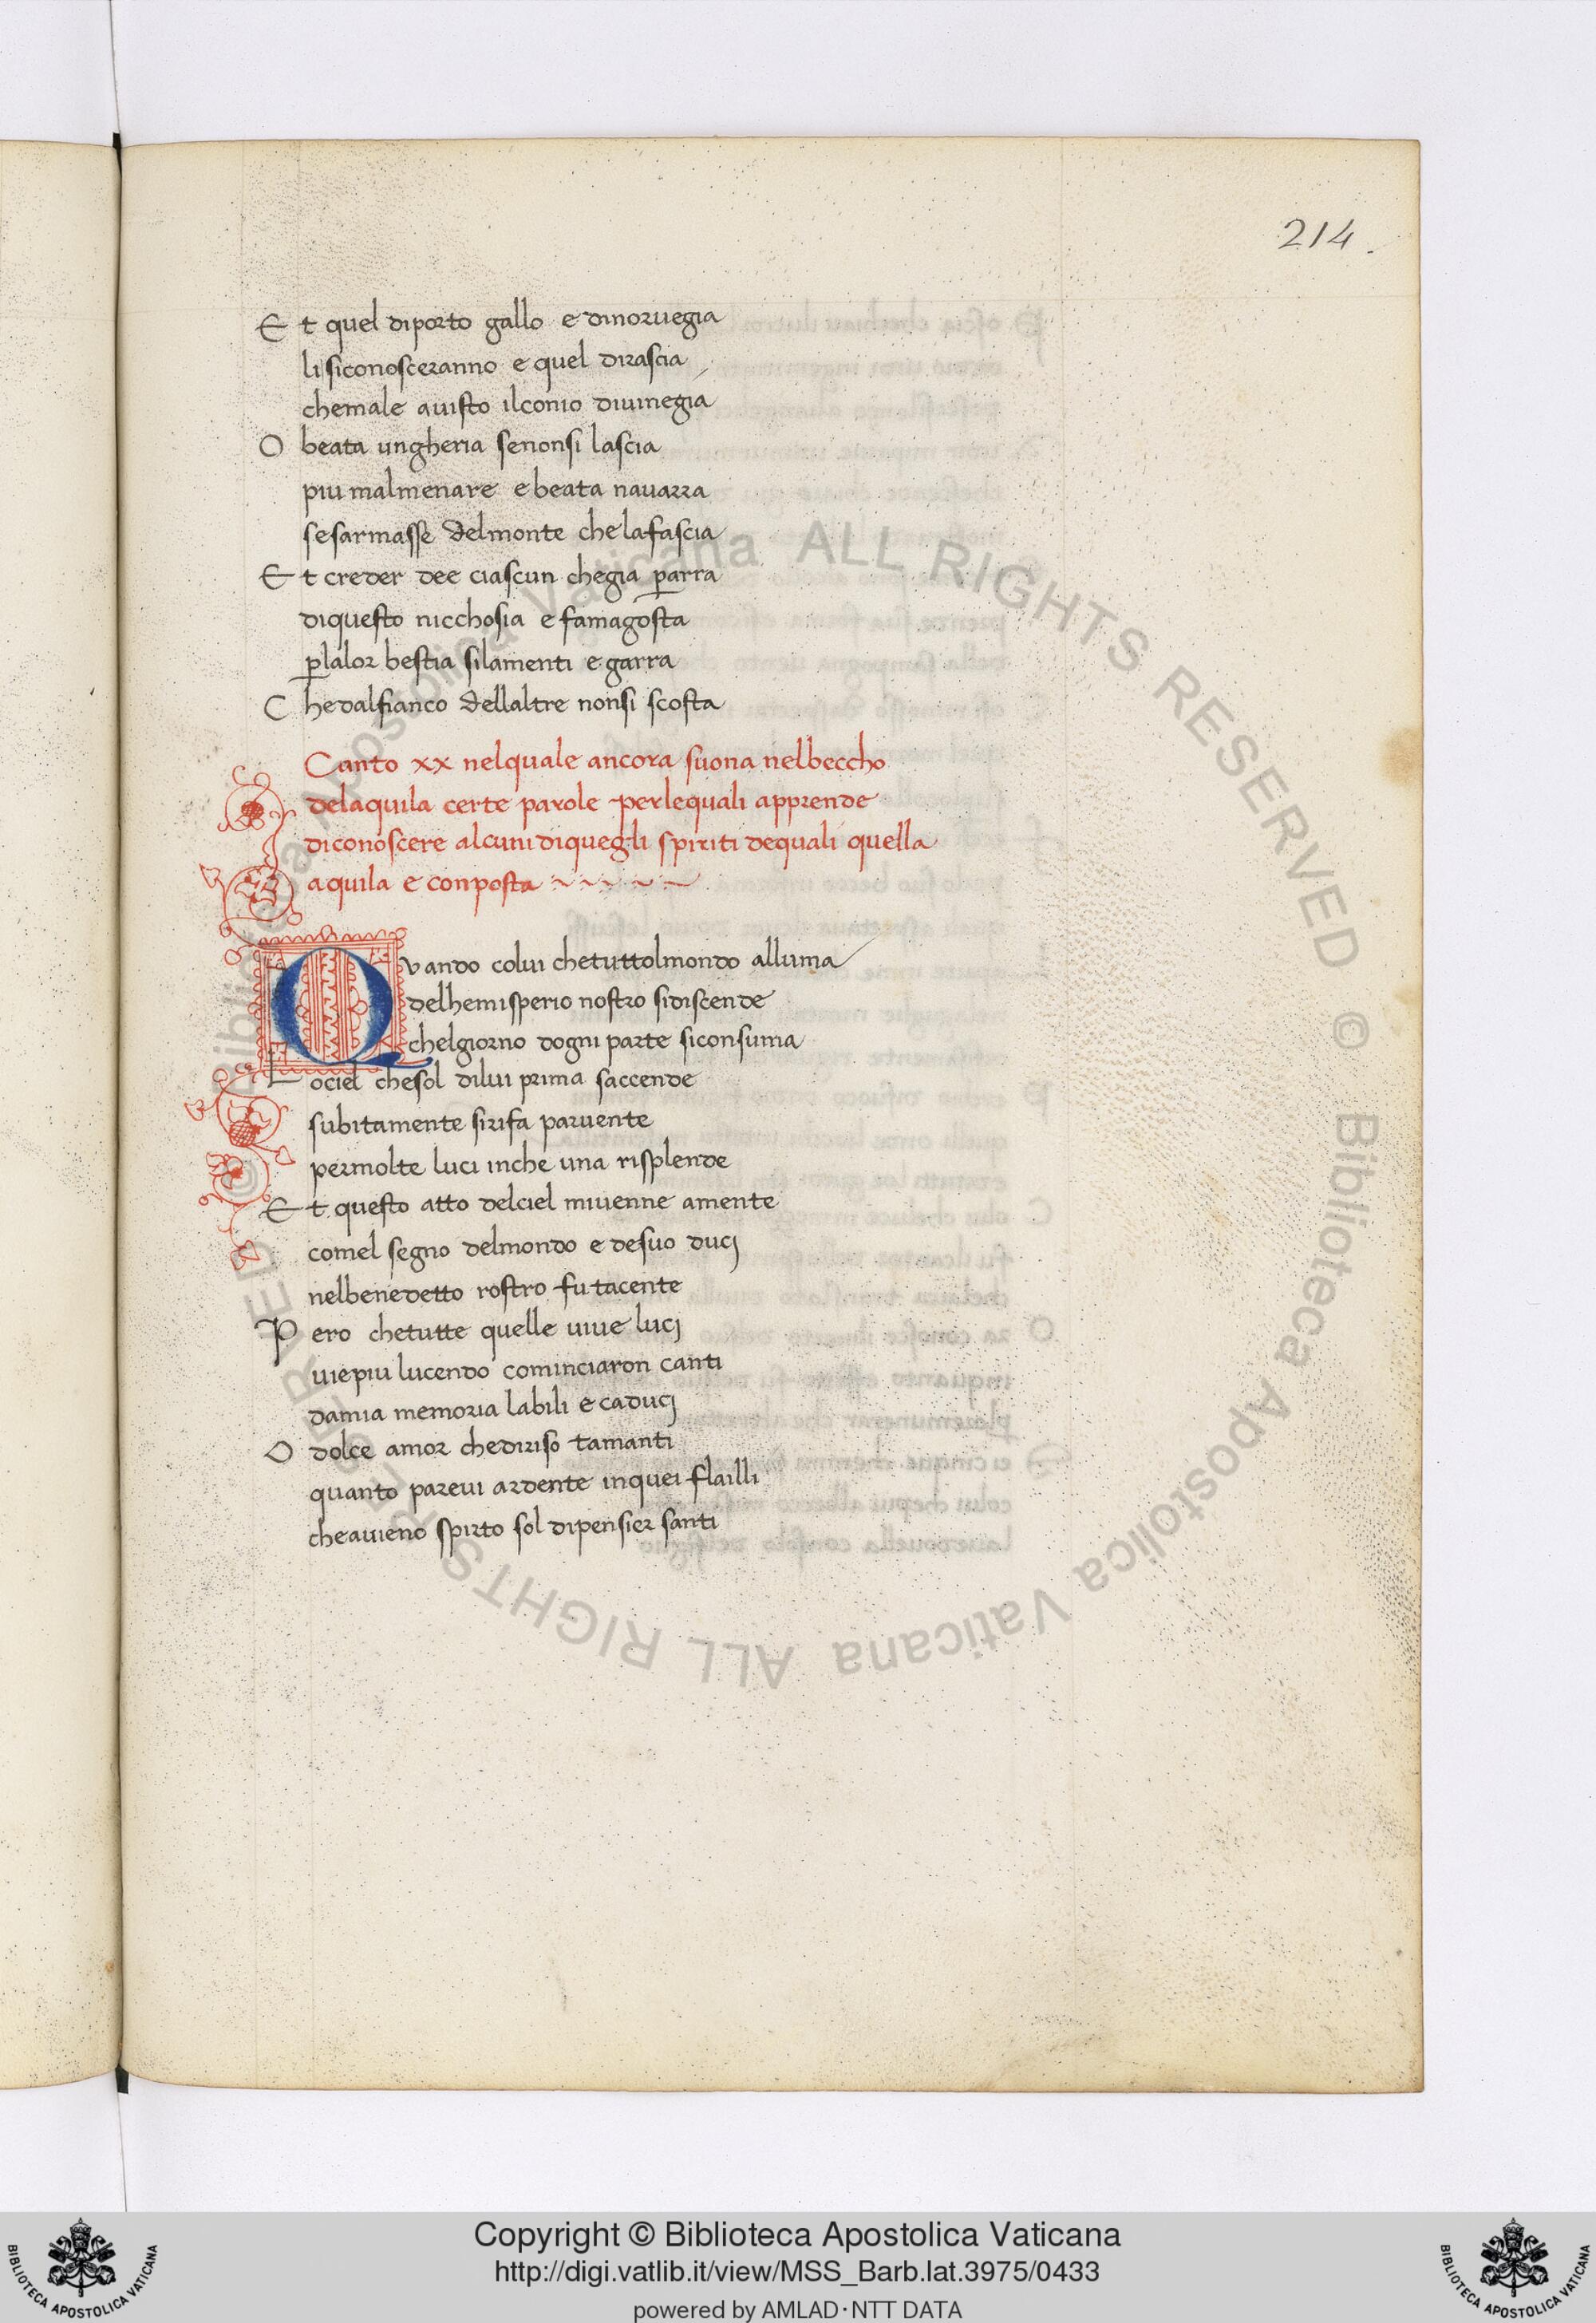 214.
Et quel diporto gallo e dinoruegia
li siconosceranno e quel dirascia
chemale auisto ilconio diuinegia
O beata ungheria senonsi lascia
piu malmenare e beata nauarra
sesarmasse delmonte chelafascia
Et creder dee ciascun chegia parra
diquesto nicchosia e famagosta
plalor bestia silamenti e garra
Chedalfianco dellaltre nonsi scosta
Canto xx nelquale ancora suona nelbeccho
delaquila certe parole perlequali apprende
diconoscere alcuni diquegli spiriti dequali quella
aquila e conposta
Qvando colui chetuttolmondo alluma
delhemisperio nostro sidiscende
chelgiorno dogni parte siconsuma
Lociel chesol dilui prima saccende
subitamente sirifa paruente
permolte luci inche una risplende
Et questo atto delciel miuenne amente
comel segno delmondo e desuo ducj
nelbenedetto rostro fu tacente
Pero chetutte quelle uiue lucj
uiepiu lucendo cominciaron canti
damia memoria labili e caducj
O dolce amor chediriso tamanti
quanto pareui ardente inquei flailli
cheauieno spirto sol dipensier santi
Copyright © Biblioteca Apostolica Vaticana
http://digi.vatlib.it/view/MSS_Barb.lat.3975/0433
powered by AMLAD·NTT DATA
BIBLIOTECA APOSTOLICA VATICANA
BIBLIOTECA APOSTOLICA VATICANA
© Biblioteca Apostolica Vaticana ALL RIGHTS RESERVED © Biblioteca Apostolica Vaticana ALL RIGHTS RESERVED